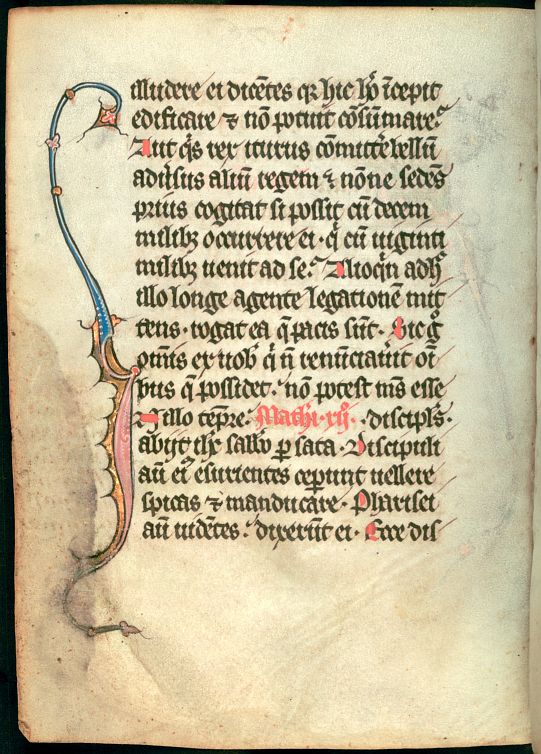 illudere ei dicẽtes qꝛ hic hõ ĩcepit
edificare ⁊ nõ potuit cõsũmare.
Aut q̃s rex iturus cõmittẽ bellũ
adũsus aliũ regem ⁊ nõne sedẽs
prius cogitat si possit cũ decem
milibꝫ occurrere ei · q̃ cũ uiginti
milibꝫ uenit ad se. Alioq̃n adhͨ
illo longe agente legationẽ mit
tens · rogat ea q̃ pacis sũt · Sic gͦ
om̃is ex uob̃ q̃ ñ renũciauit oĩ
bus q̃ possidet · nõ potest m̃s esse
In illo tẽpre. Mathi · xij. · discipl̃s ·
abijt ihc̃ sabb̃o ꝑ sata · Discipuli
aũ eiꝰ esurientes ceperũt uellere
spicas ⁊ manducare · Pharisei
aũ uidẽtes. dixerũt ei · Ecce dis